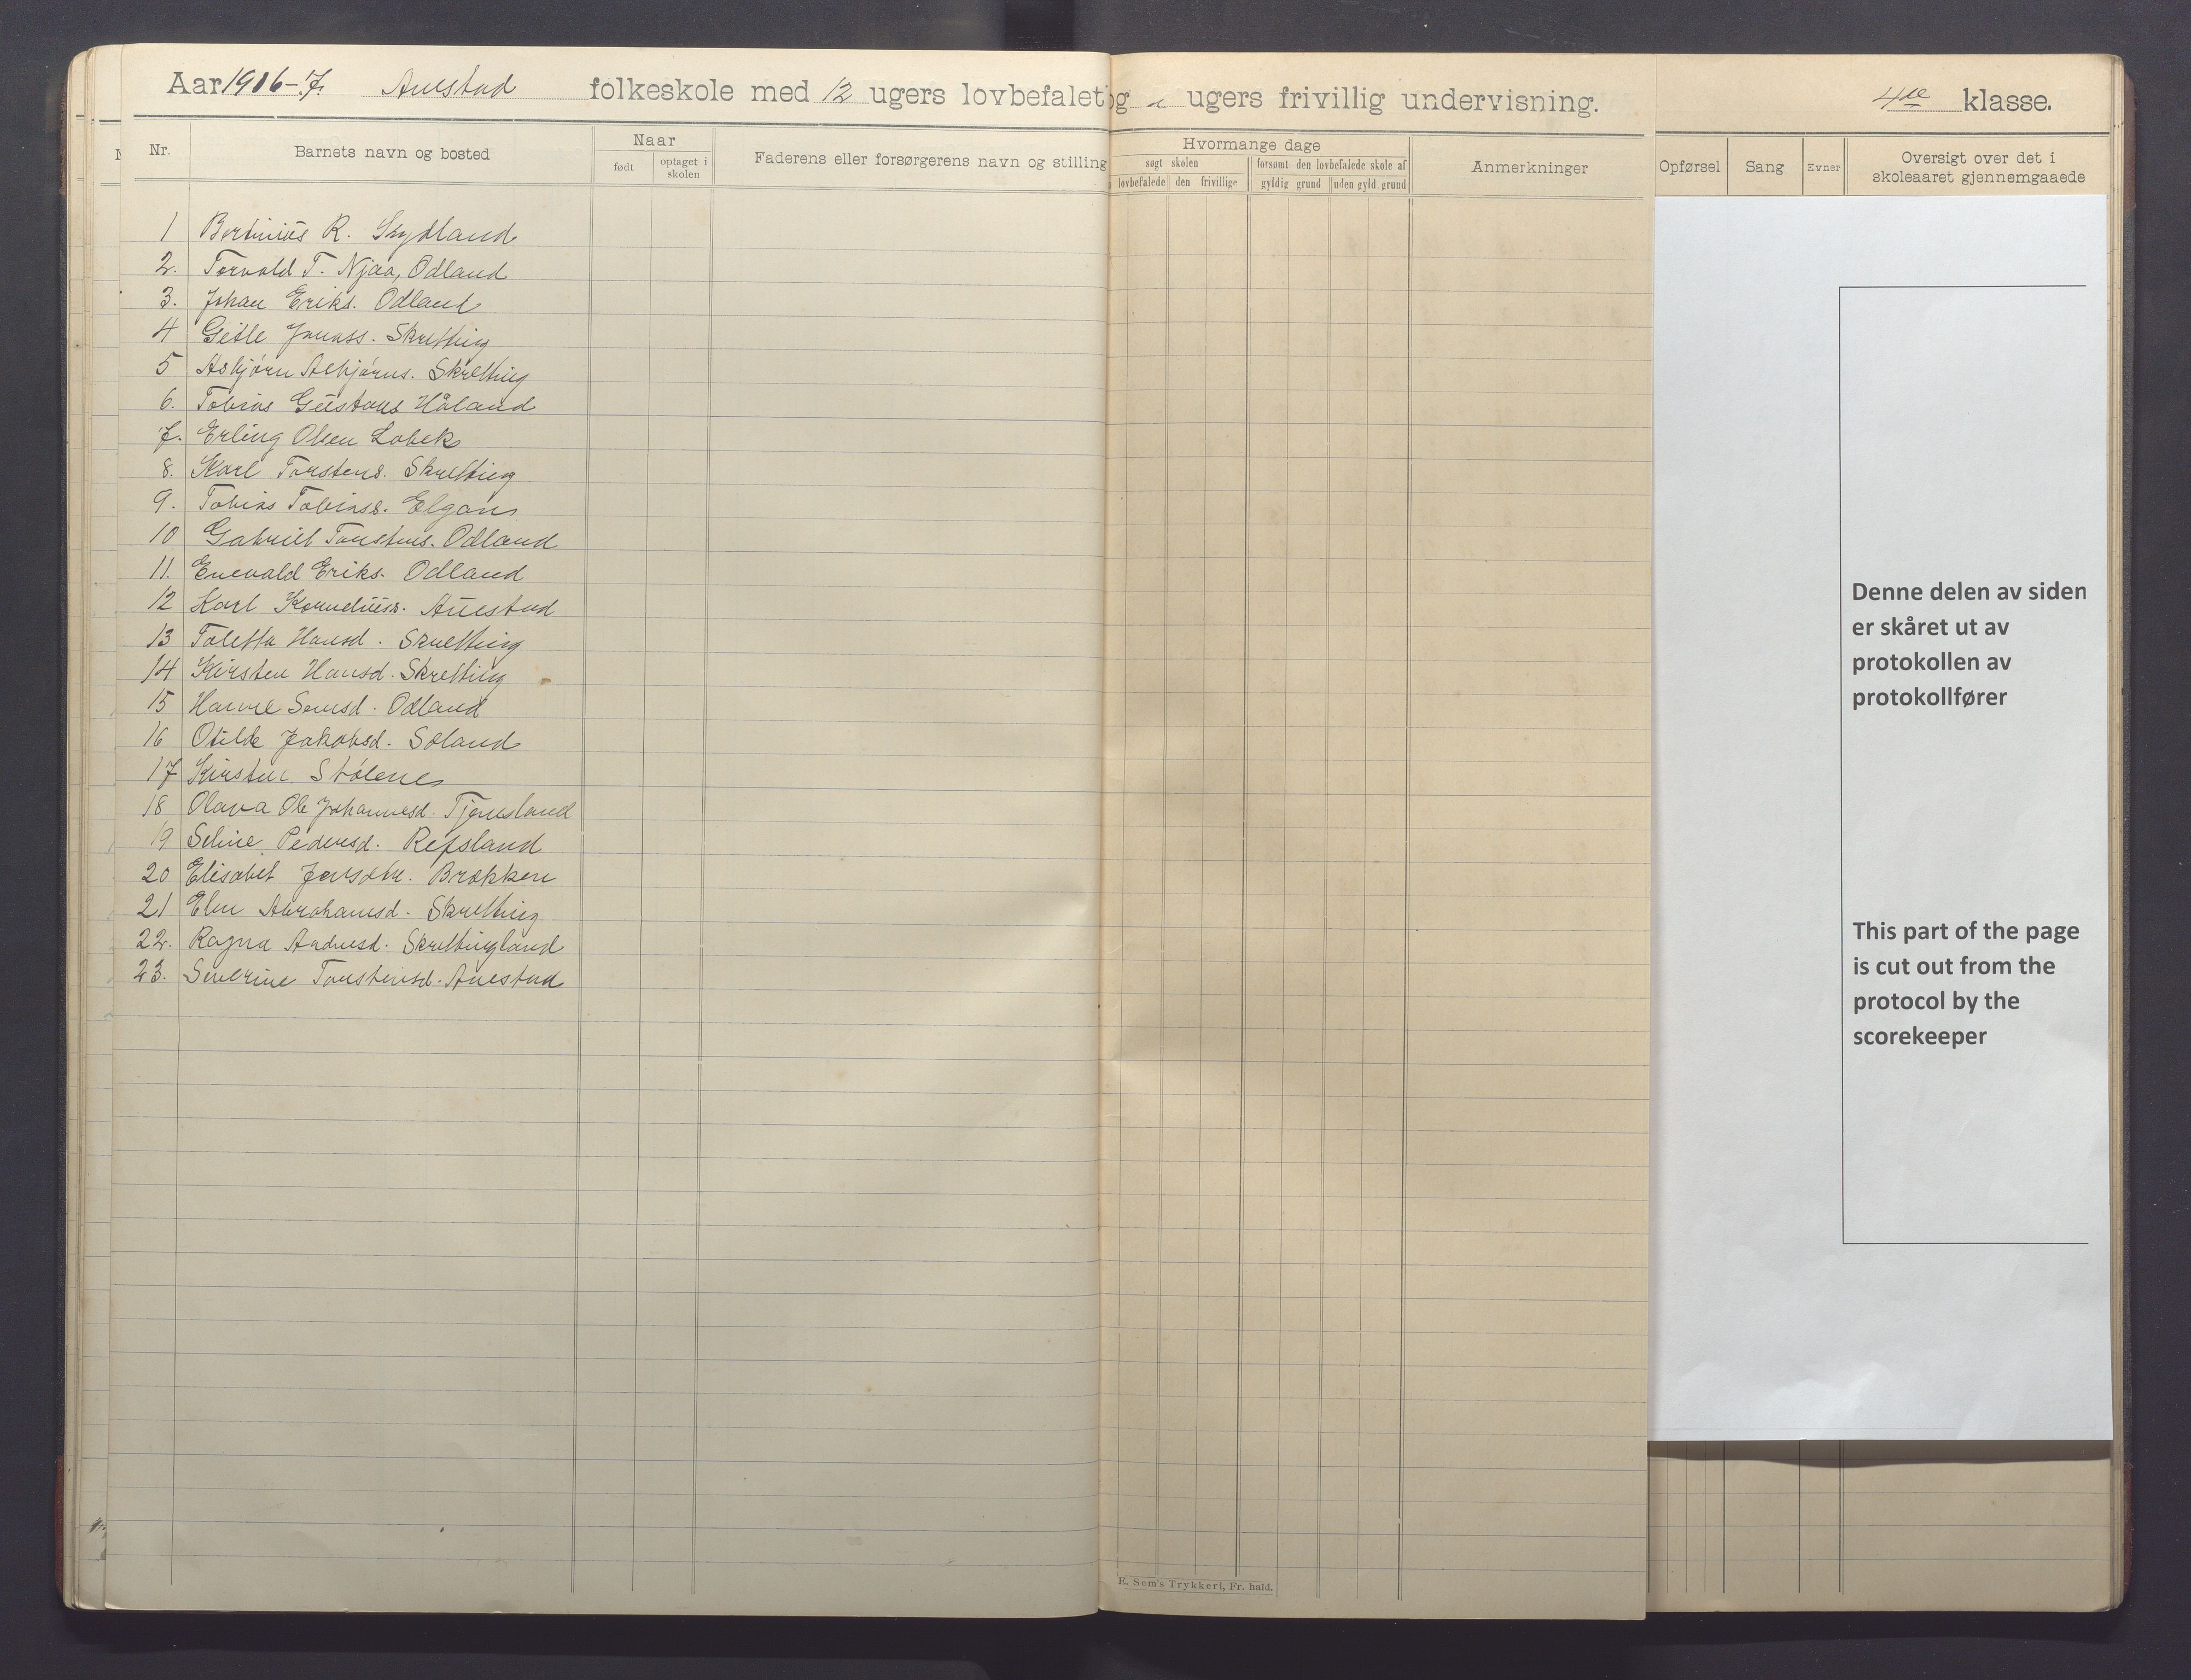 Aar 1906-7. Auestad folkeskole med 12 ugers lovbefalet og ugers frivillig undervisning. 4de klasse.
Nr. Barnets navn og bosted Naar født optaget i skolen Faderens eller forsørgerens navn og stilling Hvormange dage søgt skolen lovbefalede den frivillige forsømt den lovbefalede skole af gyldig grund uden gyld. grund Anmerkninger Opførsel Sang Evner Oversigt over det i skoleaaret gjennemgaaede
1 Bertinius R. Skydland
2. Torvald T. Njaa, Odland
3. Johan Eriks. Odland
4 Gitle Jonass. Skretting
5 Asbjørn Asbjørns. Skretting
6. Tobias Gustavs Håland
7. Erling Olsen Lobek
8. Karl Torstens. Skretting
9. Tobias Tobiass. Elgan
10 Gabriel Tonstens. Odland
11. Enevald Eriks. Odland
12 Karl Korneliuss. Auestad
13 Taletta Hansd. Skretting
14 Kirsten Hansd. Skretting
15 Hanne Sensd. Odland
16 Otilde Jakobsd. Soland
17 Kirsten Stølene
18 Olava Ole Johannesd. Tjensland
19 Seline Pedersd. Refsland
20 Elisabet Jensdtr. Brekken
21 Elen Abrahamsd. Skretting
22. Ragna Andresd. Skrettingland
23. Severine Tonstensd. Auestad
Denne delen av siden
er skåret ut av
protokollen av
protokollfører
This part of the page
is cut out from the
protocol by the
scorekeeper
E. Sem's Trykkeri, Fr. hald.